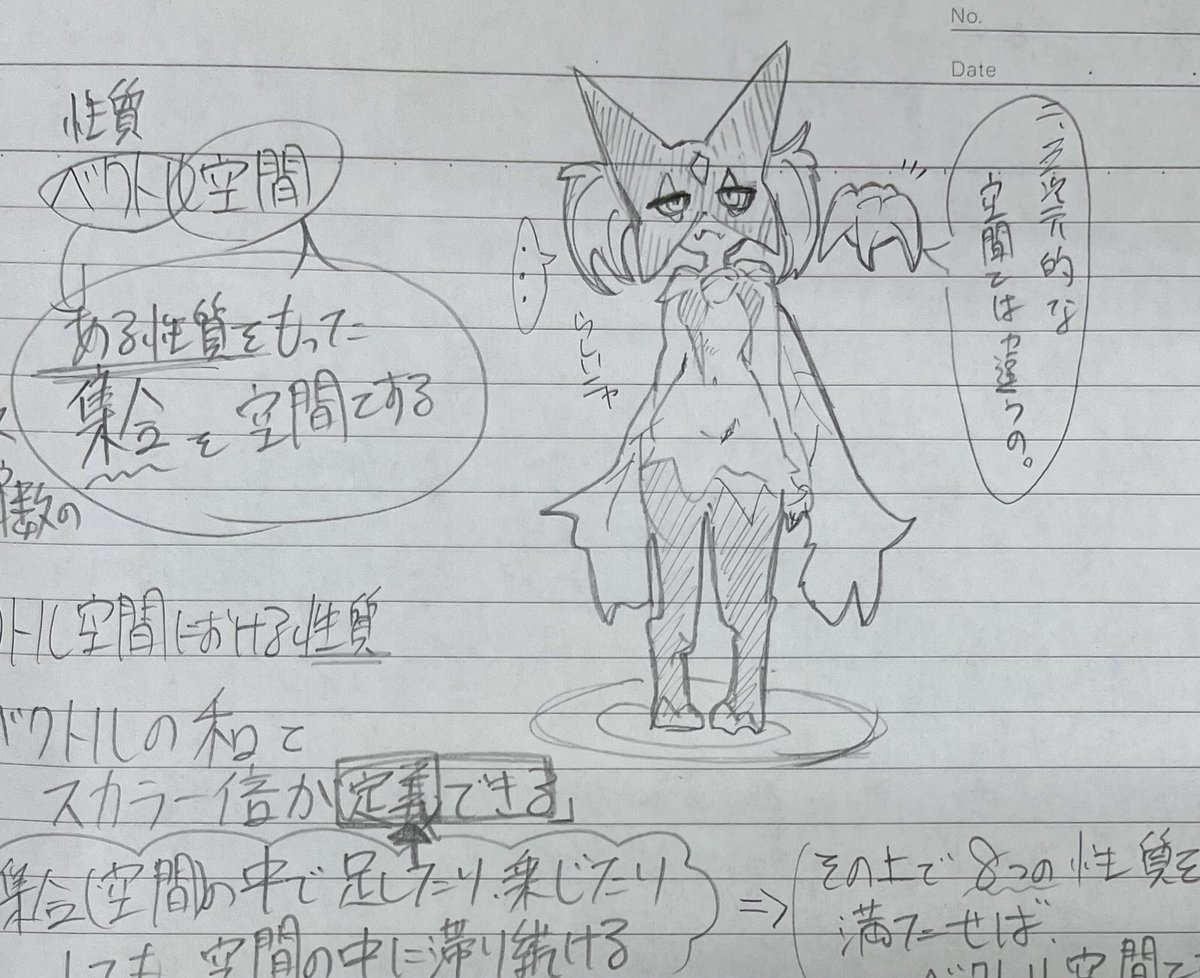 No.
Date
性質
ベクトル空間
ある性質をもった
集合を空間とする
数の
二、三次元的な
空間とは違うの。
・・・
らしいニャ
トル空間における性質
ベクトルの和と
スカラー倍が定義できる」
集合(空間)の中で足したり、乗じたり
しても、空間の中に滞り続ける
⇒
その上で8つの性質を
満たせば、
ベクトル空間と